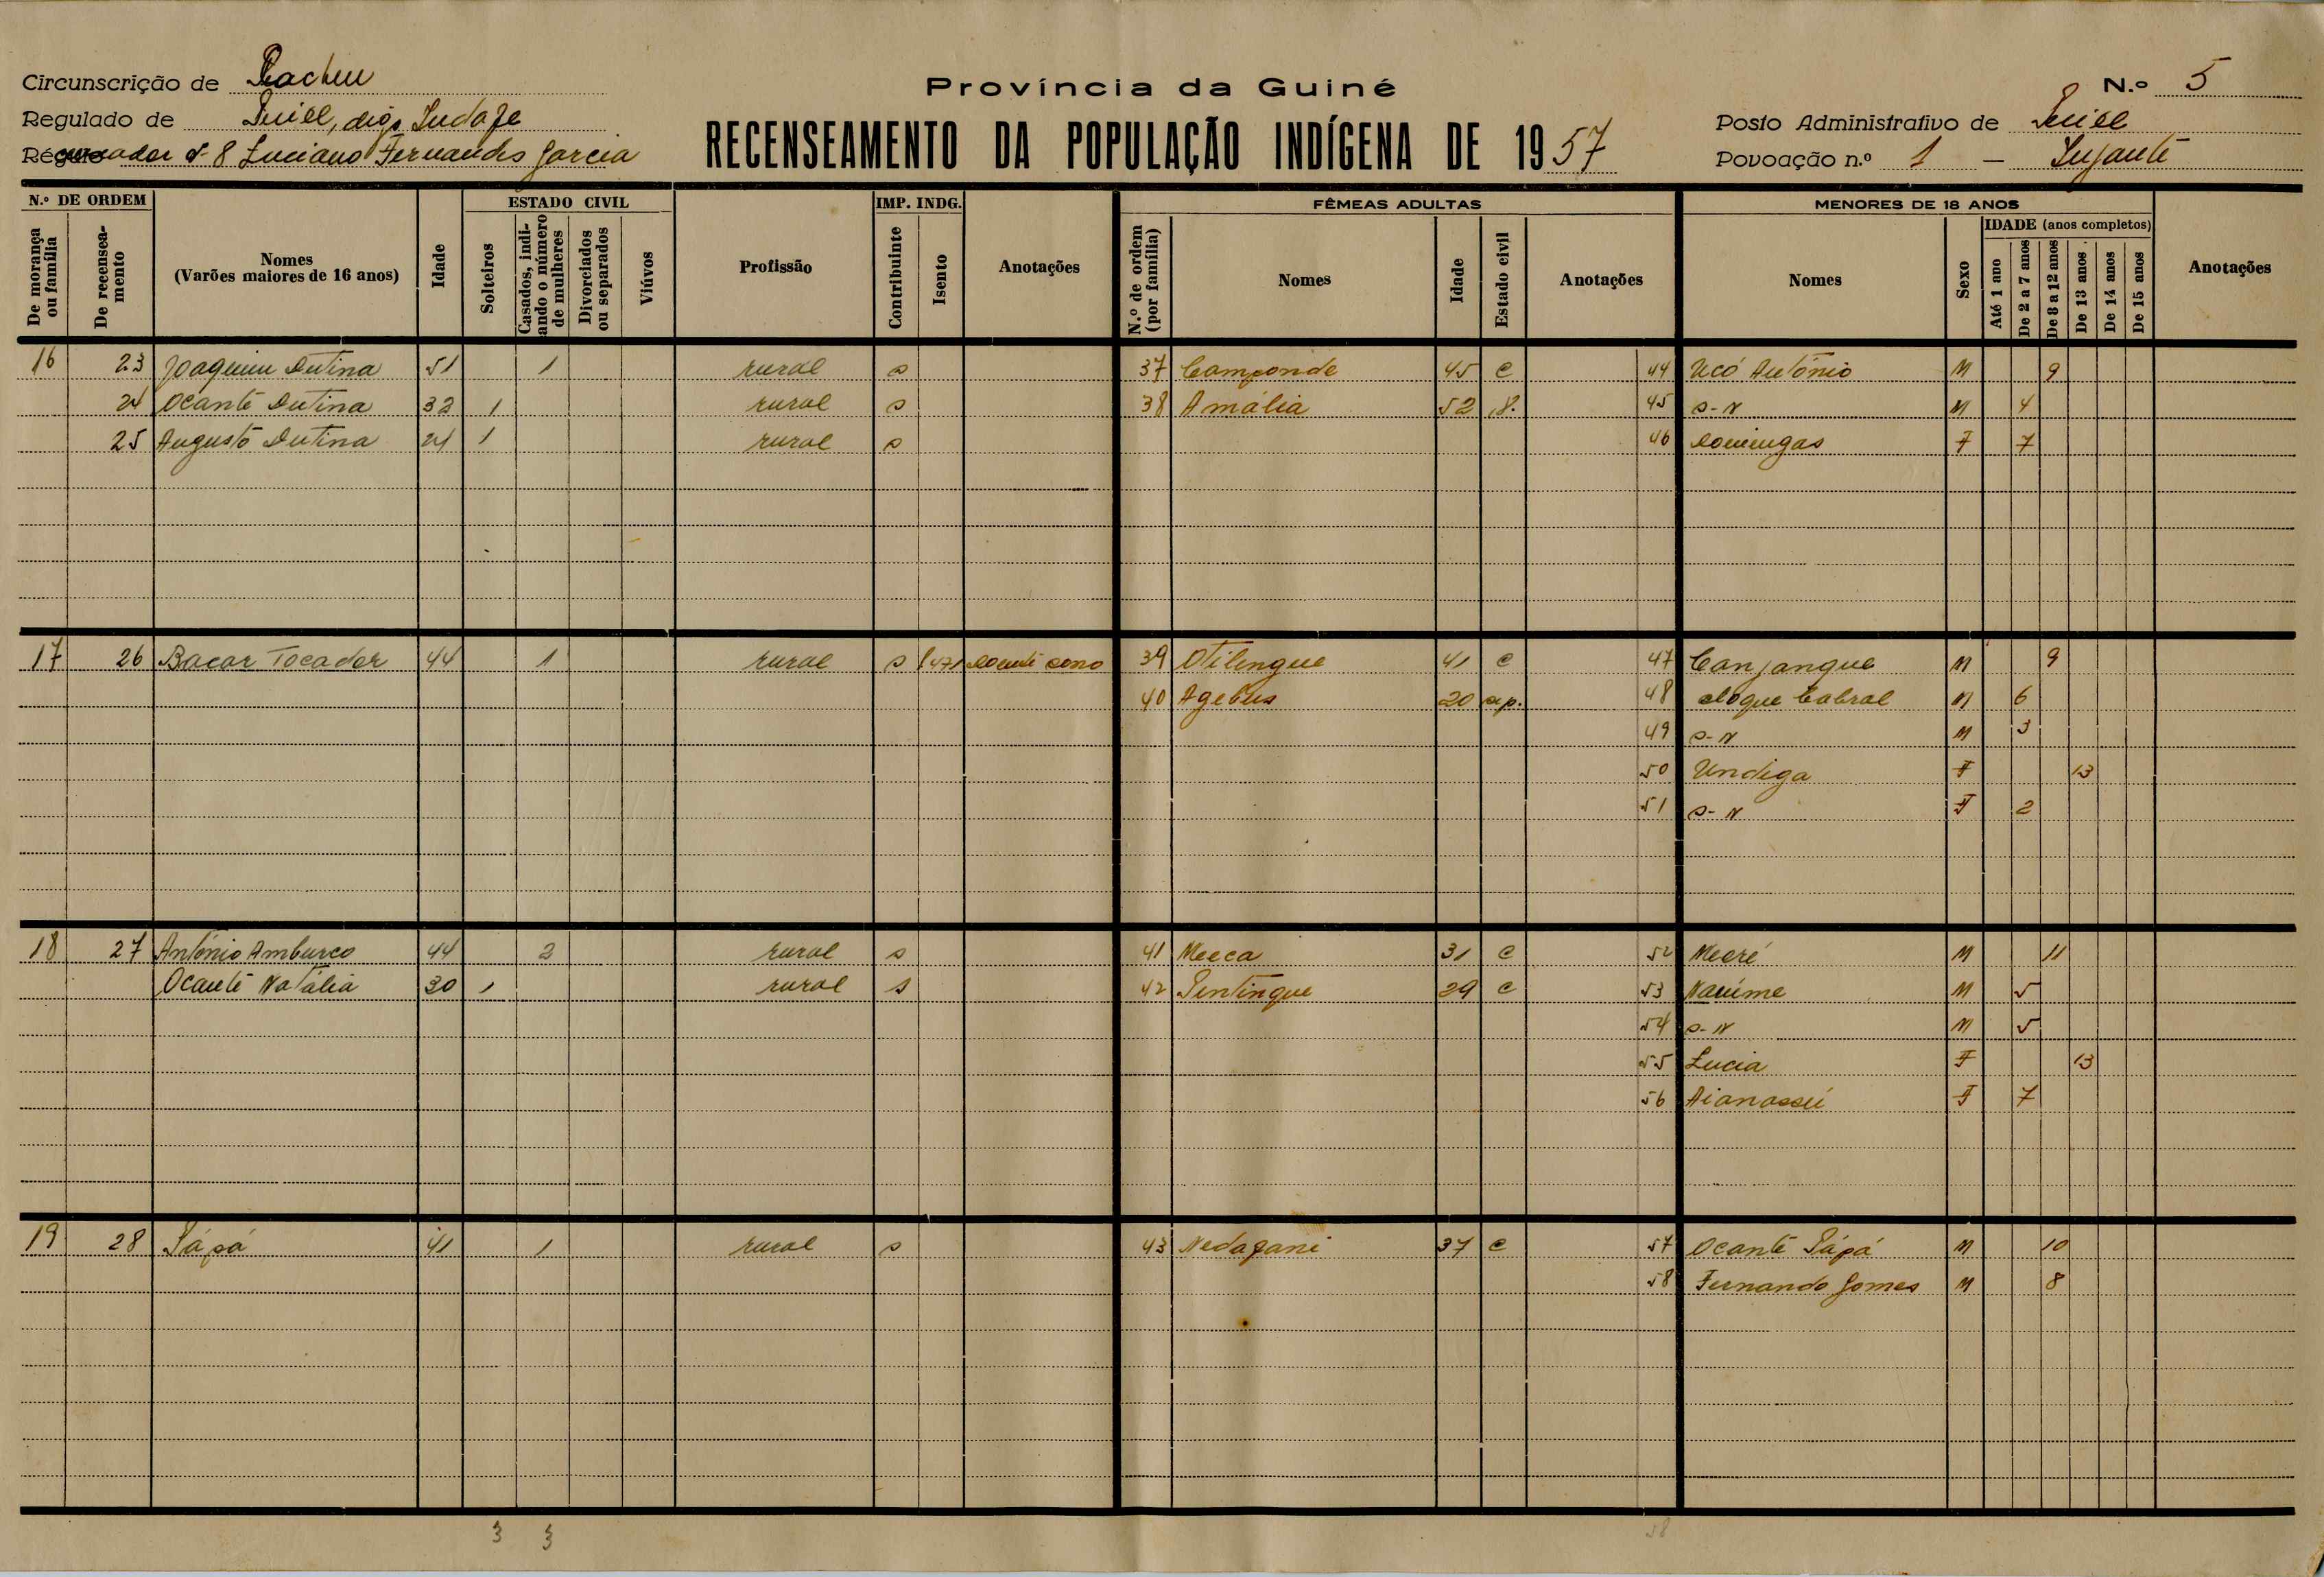 Circunscrição de Cacheu
Província da Guiné
N.º 5
Regulado de digo
RECENSEAMENTO DA POPULAÇÃO INDÍGENA DE 1957
Posto Administrativo de
Luciano Fernandes Garcia
Povoação n.º 1 –
N.º DE ORDEM
De morança ou família
De recenseamento
Nomes
(Varões maiores de 16 anos)
Idade
ESTADO CIVIL
Solteiros
Casados, indicando o número de mulheres
Divorciados ou separados
Viúvos
Profissão
IMP. INDG.
Contribuinte
Isento
Anotações
FÊMEAS ADULTAS
N.º de ordem (por família)
Nomes
Idade
Estado civil
Anotações
MENORES DE 18 ANOS
Nomes
Sexo
IDADE (anos completos)
Até 1 ano
De 2 a 7 anos
De 8 a 12 anos
De 13 anos
De 14 anos
De 15 anos
Anotações
16 23 Joaquim Dutina 51 1 rural s 37 Camponde 45 c 44 Ucó António M 9
24 Ocante Dutina 32 1 rural s 38 Amália 52 s. 45 s-N M 4
25 Augusto Dutina 21 1 rural s 46 Domingas F 7
17 26 Bacar Tocador 44 1 rural s 39 Otilengue 41 c 47 Canjangue M 9
40 20 sep. 48 Cabral M 6
49 s-N M 3
50 Undiga F 13
51 s-N F 2
18 27 António Amburco 44 2 rural s 41 31 c 52 M 11
Ocante Natália 30 1 rural s 42 29 c 53 M 5
54 s-N M 5
55 Lucia F 13
56 F 7
19 28 41 1 rural s 43 37 c 57 Ocante M 10
58 Fernando Gomes M 8
3 3 58